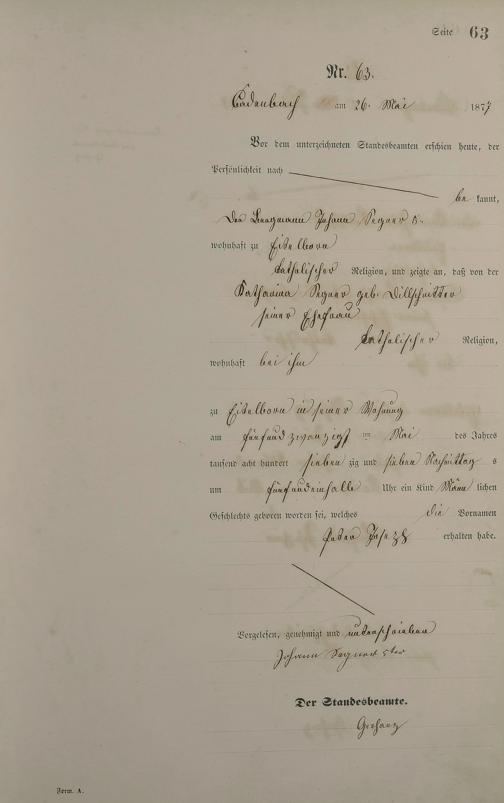 Seite 63
Nr. 63.
Cadenbach am 26. Mai 1877
Vor dem unterzeichneten Standesbeamten erschien heute, der
Persönlichkeit nach
be kannt,
Der Bergmann Johann Segner
wohnhaft zu Eitelborn
katholischer Religion, und zeigte an, daß von der
Katharina Segner geb. Dillschnitter
seiner Ehefrau
katholischer Religion,
wohnhaft bei ihm
zu Eitelborn in seiner Wohnung
am fünfundzwanzigst en Mai des Jahres
tausend acht hundert sieben zig und sieben Nachmittag s
um fünfundeinhalb Uhr ein Kind Männ lichen
Geschlechts geboren worden sei, welches die Vornamen
Peter Joseph erhalten habe.
Vorgelesen, genehmigt und unterschrieben
Johann Segner
Der Standesbeamte.
Form. A.